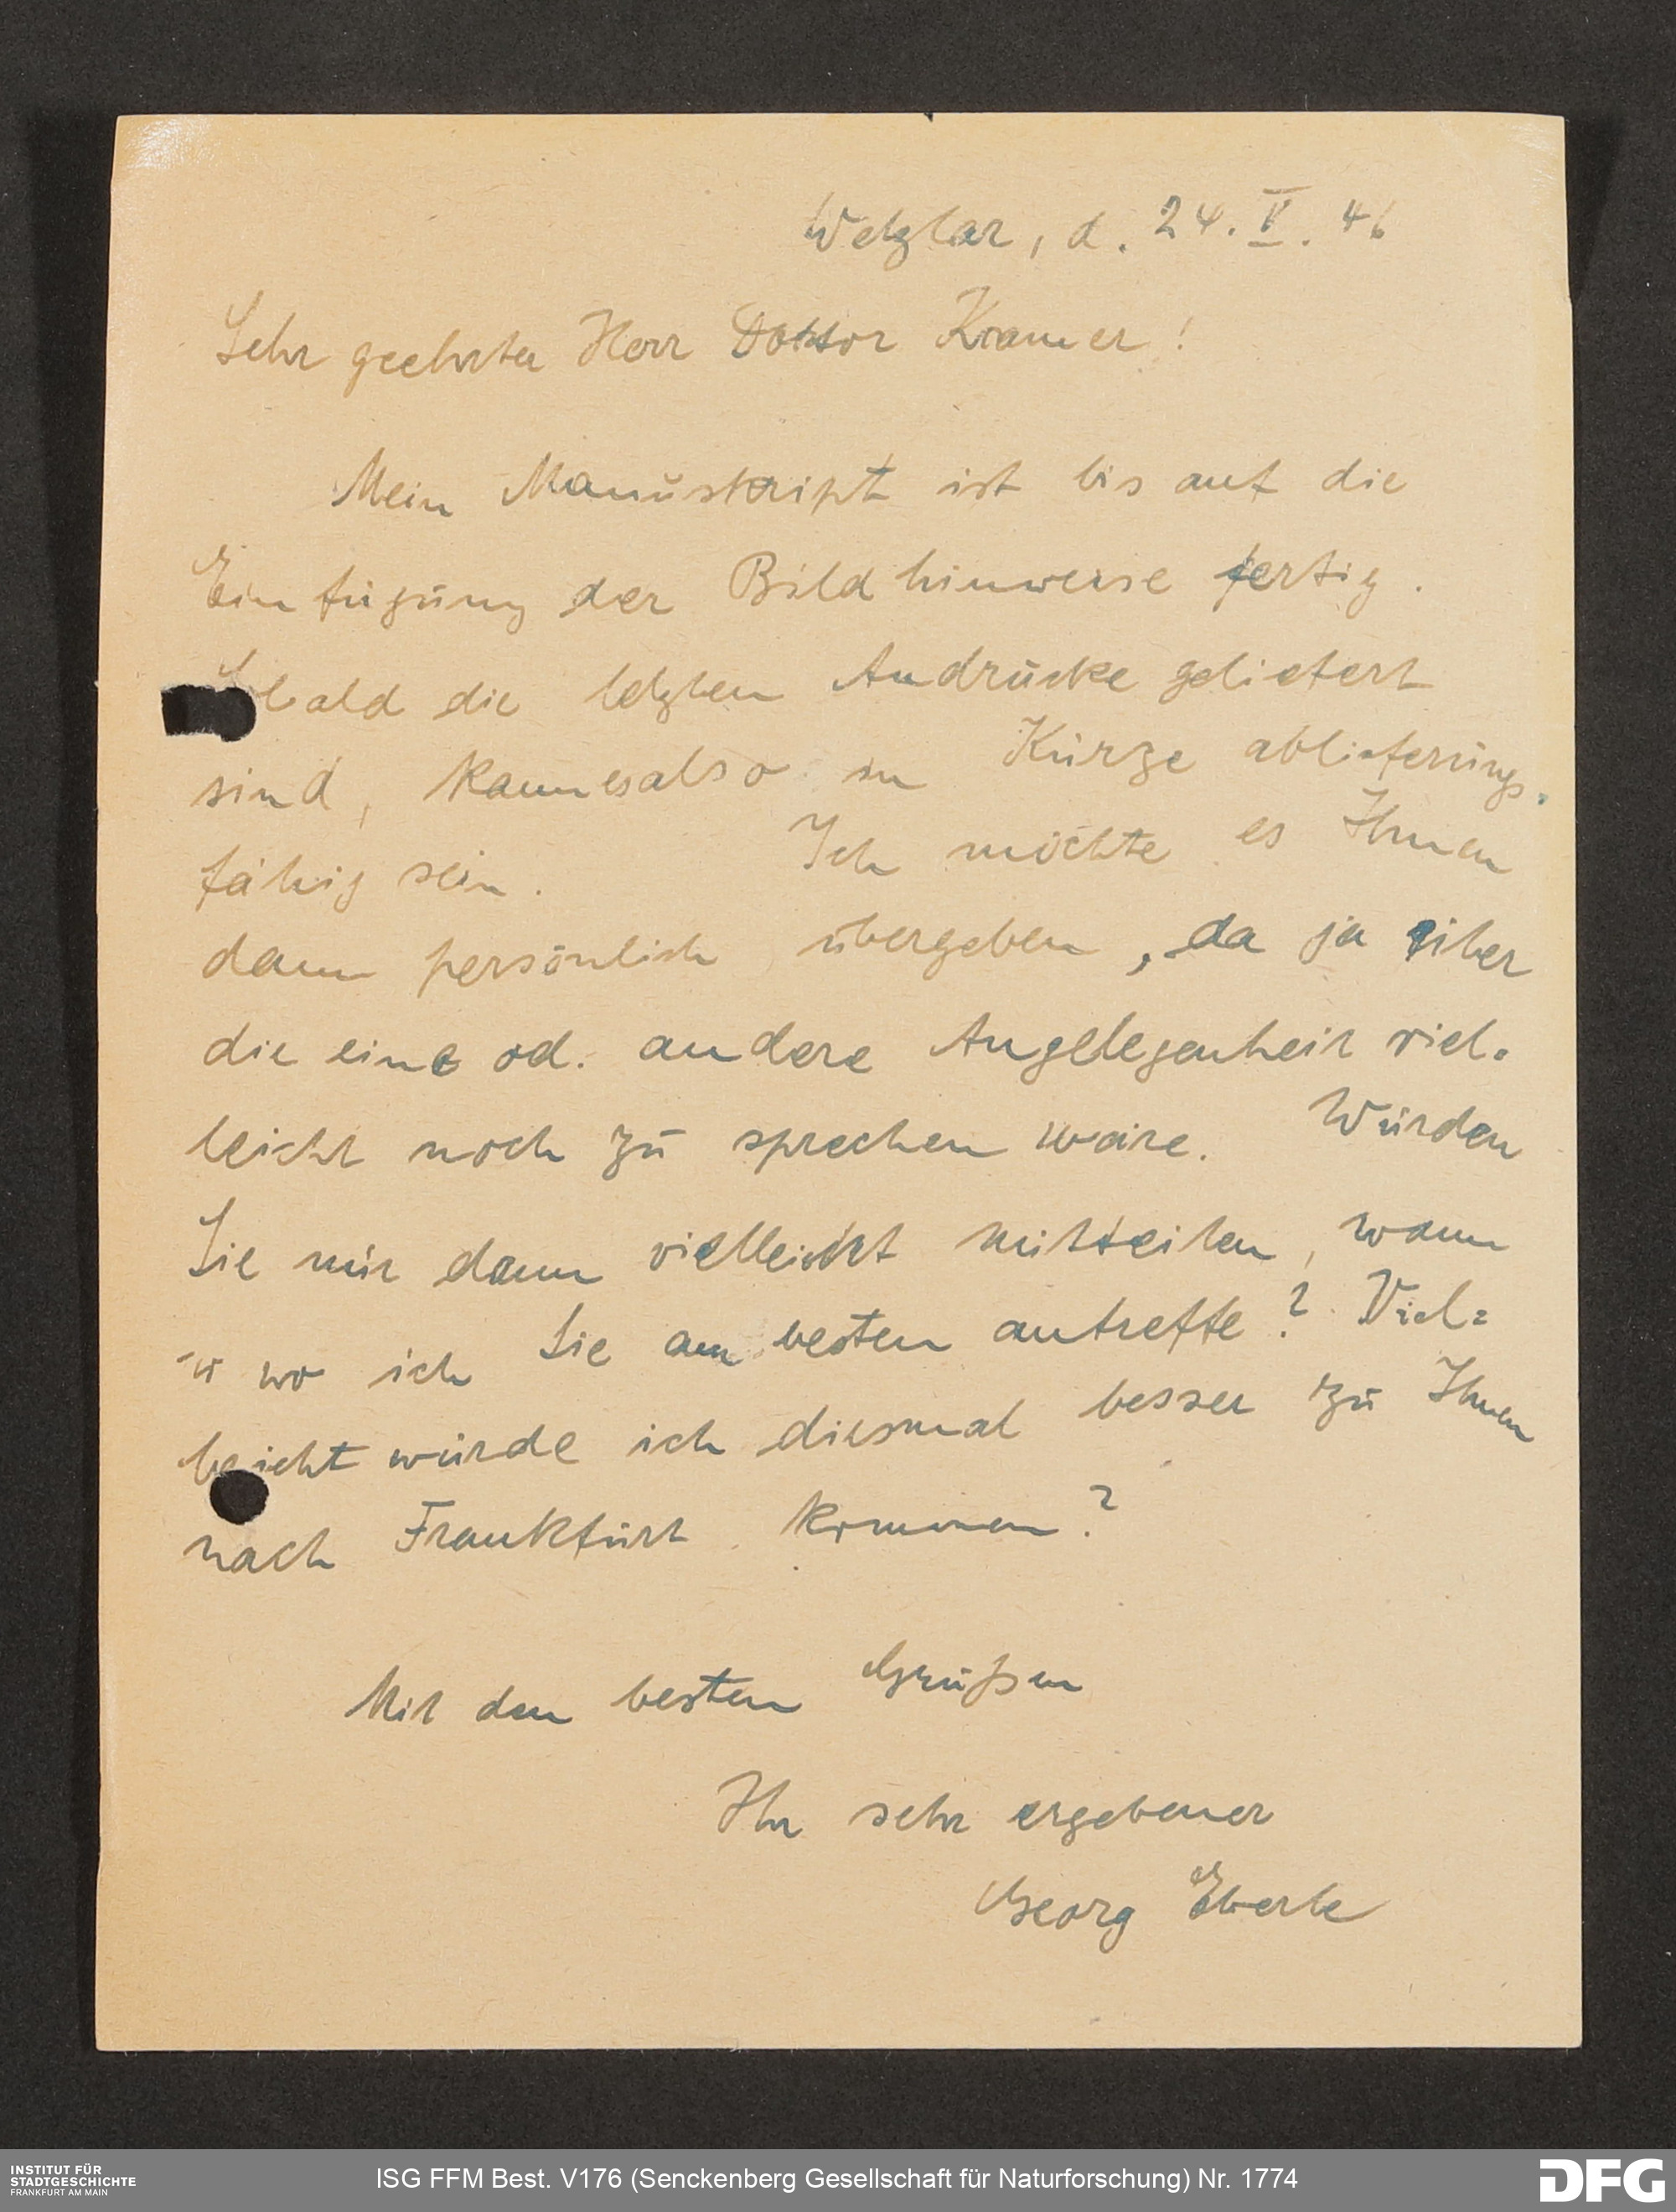 Wetzlar, d. 24. V. 46
Sehr geehrter Herr Doktor Kramer!
Mein Manuskript ist bis auf die
Einfügung der Bildhinweise fertig.
Sobald die letzten Andrücke geliefert
sind, kann es also in Kürze ablieferungs-
fähig sein. Ich möchte es Ihnen
dann persönlich übergeben, da ja über
die eine od. andere Angelegenheit viel-
leicht noch zu sprechen wäre. Würden
Sie mir dann vielleicht mitteilen, wann
u wo ich Sie am besten antreffe? Viel=
leicht würde ich diesmal besser zu Ihnen
nach Frankfurt kommen?
Mit den besten Grüßen
Ihr sehr ergebener
Georg Eberle
INSTITUT FÜR
STADTGESCHICHTE
FRANKFURT AM MAIN
ISG FFM Best. V176 (Senckenberg Gesellschaft für Naturforschung) Nr. 1774
DFG